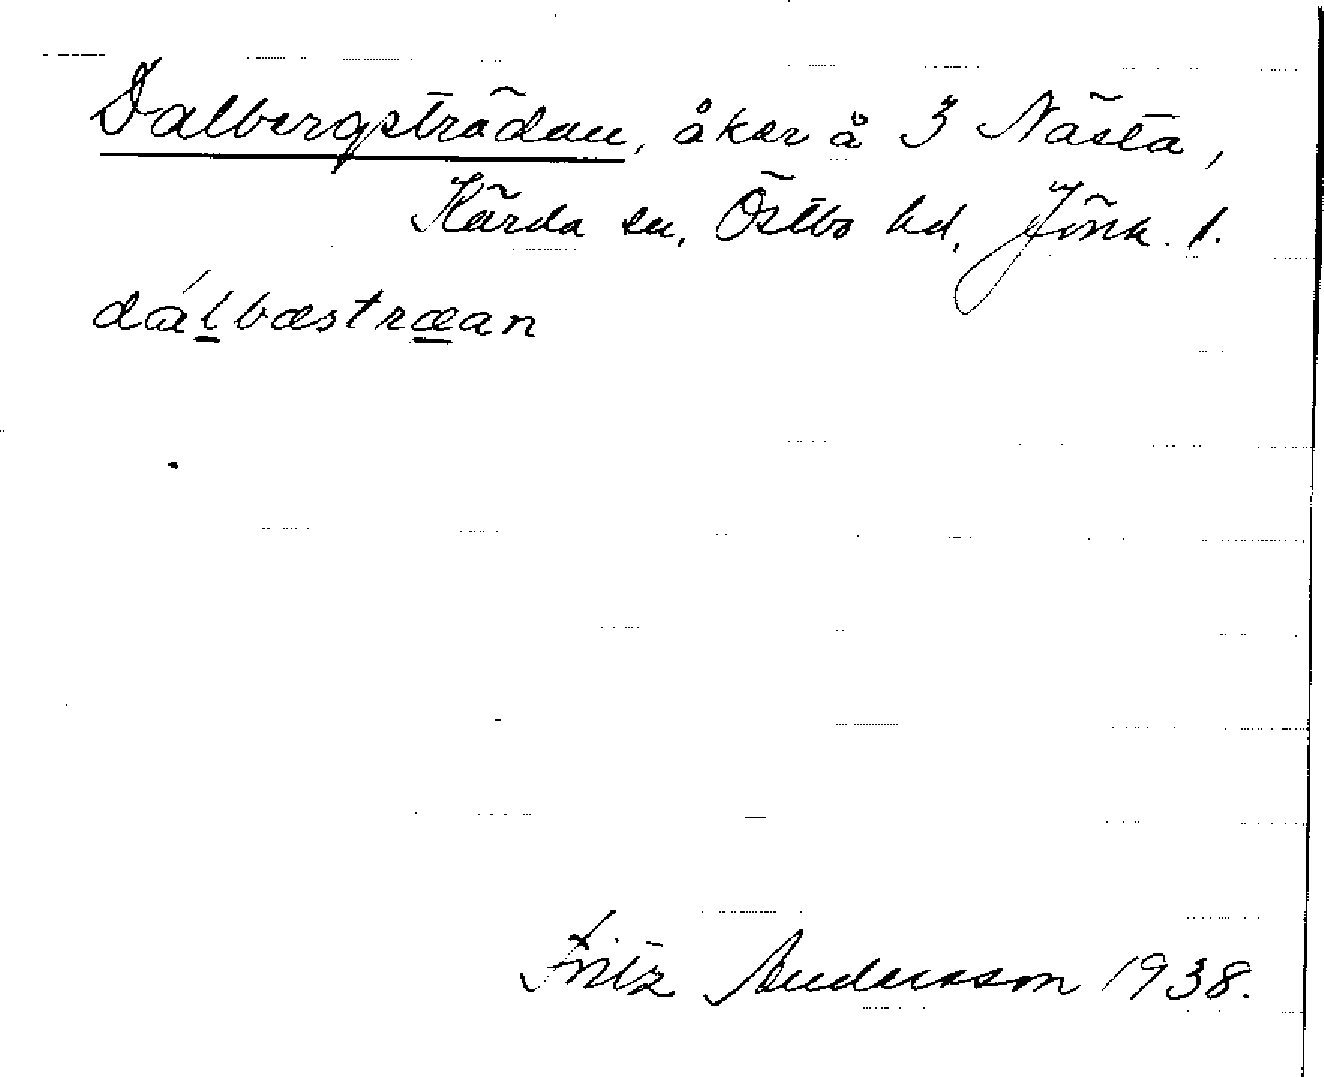 Dalbergsträdan, åker å 3 Nästa,
Kärda sn, Östbo hd, Jönk. l.
dálbæstræan
Fritz Andersson 1938.